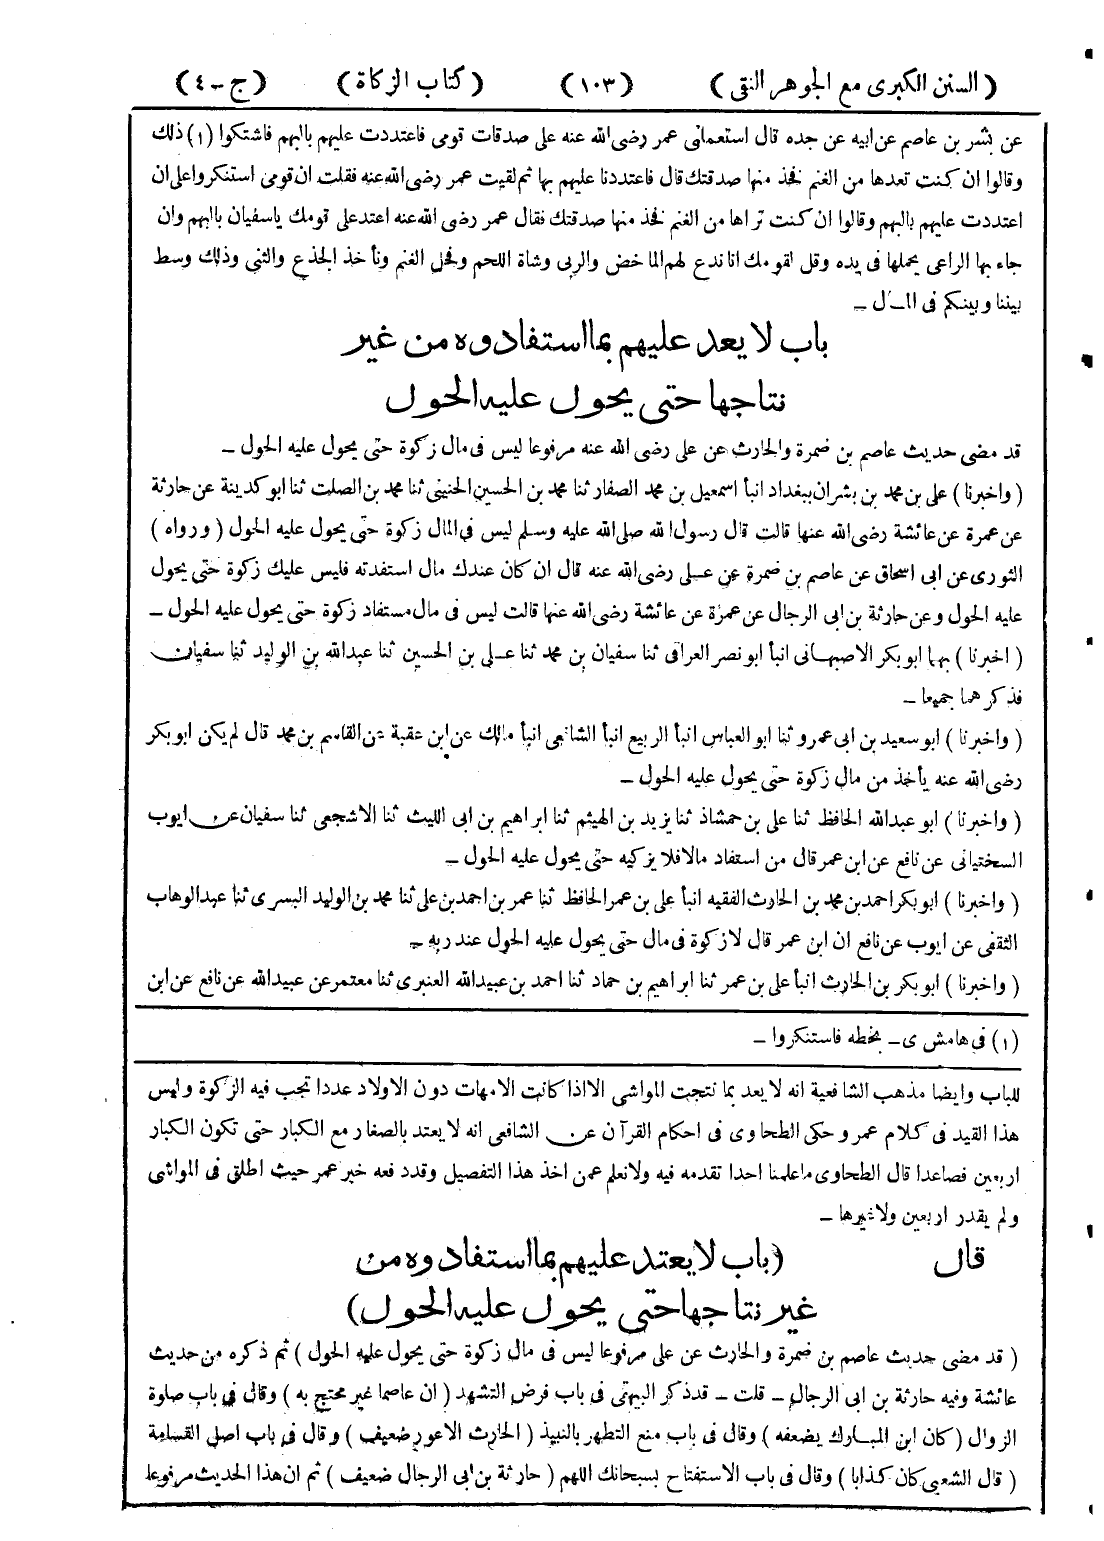 ( السنن الكبرى مع الجوهر النقى ) (١٠٣) ( كتاب الزكاة ) ( ج - ٤ )
عن بشر بن عاصم عن ابيه عن جده قال استعملنى عمر رضى الله عنه على صدقات قومى فاعتددت عليهم بالبهم فاشتكوا (١) ذلك
وقالوا ان كنت تعدها من الغنم فخذ منها صدقتك قال فاعتددنا عليهم بها ثم لقيت عمر رضى الله عنه فقلت ان قومى استنكروا على ان
اعتددت عليهم بالبهم وقالوا ان كنت تراها من الغنم فخذ منها صدقتك فقال عمر رضى الله عنه اعتد على قومك ياسفيان بالبهم وان
جاء بها الراعى يحملها فى يده وقل لقومك انا ندع لهم الماخض والربى وشاة اللحم وفحل الغنم ونأخذ الجذع والثنى وذلك وسط
بيننا وبينكم فى المال -
باب لا يعد عليهم بما استفادوه من غير
نتاجها حتى يحول عليه الحول
قد مضى حديث عاصم بن ضمرة والحارث عن على رضى الله عنه مرفوعا ليس فى مال زكوة حتى يحول عليه الحول -
( واخبرنا ) على بن محمد بن بشران ببغداد انبأ اسمعيل بن محمد الصفار ثنا محمد بن الحسين الحنينى ثنا محمد بن الصلت ثنا ابو كدينة عن حارثة
عن عمرة عن عائشة رضى الله عنها قالت قال رسول الله صلى الله عليه وسلم ليس فى المال زكوة حتى يحول عليه الحول ( ورواه )
الثورى عن ابى اسحاق عن عاصم بن ضمرة عن على رضى الله عنه قال ان كان عندك مال استفدته فليس عليك زكوة حتى يحول
عليه الحول وعن حارثة بن ابى الرجال عن عمرة عن عائشة رضى الله عنها قالت ليس فى مال مستفاد زكوة حتى يحول عليه الحول -
( اخبرنا ) بهما ابو بكر الاصبهانى انبأ ابو نصر العراقى ثنا سفيان بن محمد ثنا على بن الحسين ثنا عبدالله بن الوليد ثنا سفيان
فذكرهما جميعا -
( واخبرنا ) ابو سعيد بن ابى عمرو ثنا ابو العباس انبأ الربيع انبأ الشافعى انبأ مالك عن ابن عقبة عن القاسم بن محمد قال لم يكن ابو بكر
رضى الله عنه يأخذ من مال زكوة حتى يحول عليه الحول -
( واخبرنا ) ابو عبدالله الحافظ ثنا على بن حمشاذ ثنا يزيد بن الهيثم ثنا ابراهيم بن ابى الليث ثنا الاشجعى ثنا سفيان عن ايوب
السختيانى عن نافع عن ابن عمر قال من استفاد مالا فلا يزكيه حتى يحول عليه الحول -
( واخبرنا ) ابو بكر احمد بن محمد بن الحارث الفقيه انبأ على بن عمر الحافظ ثنا عمر بن احمد بن على ثنا محمد بن الوليد البسرى ثنا عبد الوهاب
الثقفى عن ايوب عن نافع ان ابن عمر قال لا زكوة فى مال حتى يحول عليه الحول عند ربه -
( واخبرنا ) ابو بكر بن الحارث انبأ على بن عمر ثنا ابراهيم بن حماد ثنا احمد بن عبيدالله العنبرى ثنا معتمر عن عبيدالله عن نافع عن ابن
(١) فى هامش ى - بخطه فاستنكروا -
للباب وايضا مذهب الشافعية انه لا يعد بما نتجت المواشى الا اذا كانت الامهات دون الاولاد عددا تجب فيه الزكوة وليس
هذا القيد فى كلام عمر وحكى الطحاوى فى احكام القرآن عن الشافعى انه لا يعتد بالصغار مع الكبار حتى تكون الكبار
اربعين فصاعدا قال الطحاوى ما علمنا احدا تقدمه فيه ولا نعلم عمن اخذ هذا التفصيل وقد دفعه خبر عمر حيث اطلق فى المواشى
ولم يقدر اربعين ولا غيرها -
قال (باب لا يعتد عليهم بما استفادوه من
غير نتاجها حتى يحول عليه الحول)
( قد مضى حديث عاصم بن ضمرة والحارث عن على مرفوعا ليس فى مال زكوة حتى يحول عليه الحول ) ثم ذكره من حديث
عائشة وفيه حارثة بن ابى الرجال - قلت - قد ذكر البيهقى فى باب فرض التشهد ( ان عاصما غير محتج به ) وقال فى باب صلوة
الزوال ( كان ابن المبارك يضعفه ) وقال فى باب منع التطهر بالنبيذ ( الحارث الاعور ضعيف ) وقال فى باب اصل القسامة
( قال الشعبى كان كذابا ) وقال فى باب الاستفتاح بسبحانك اللهم ( حارثة بن ابى الرجال ضعيف ) ثم ان هذا الحديث مرفوعا